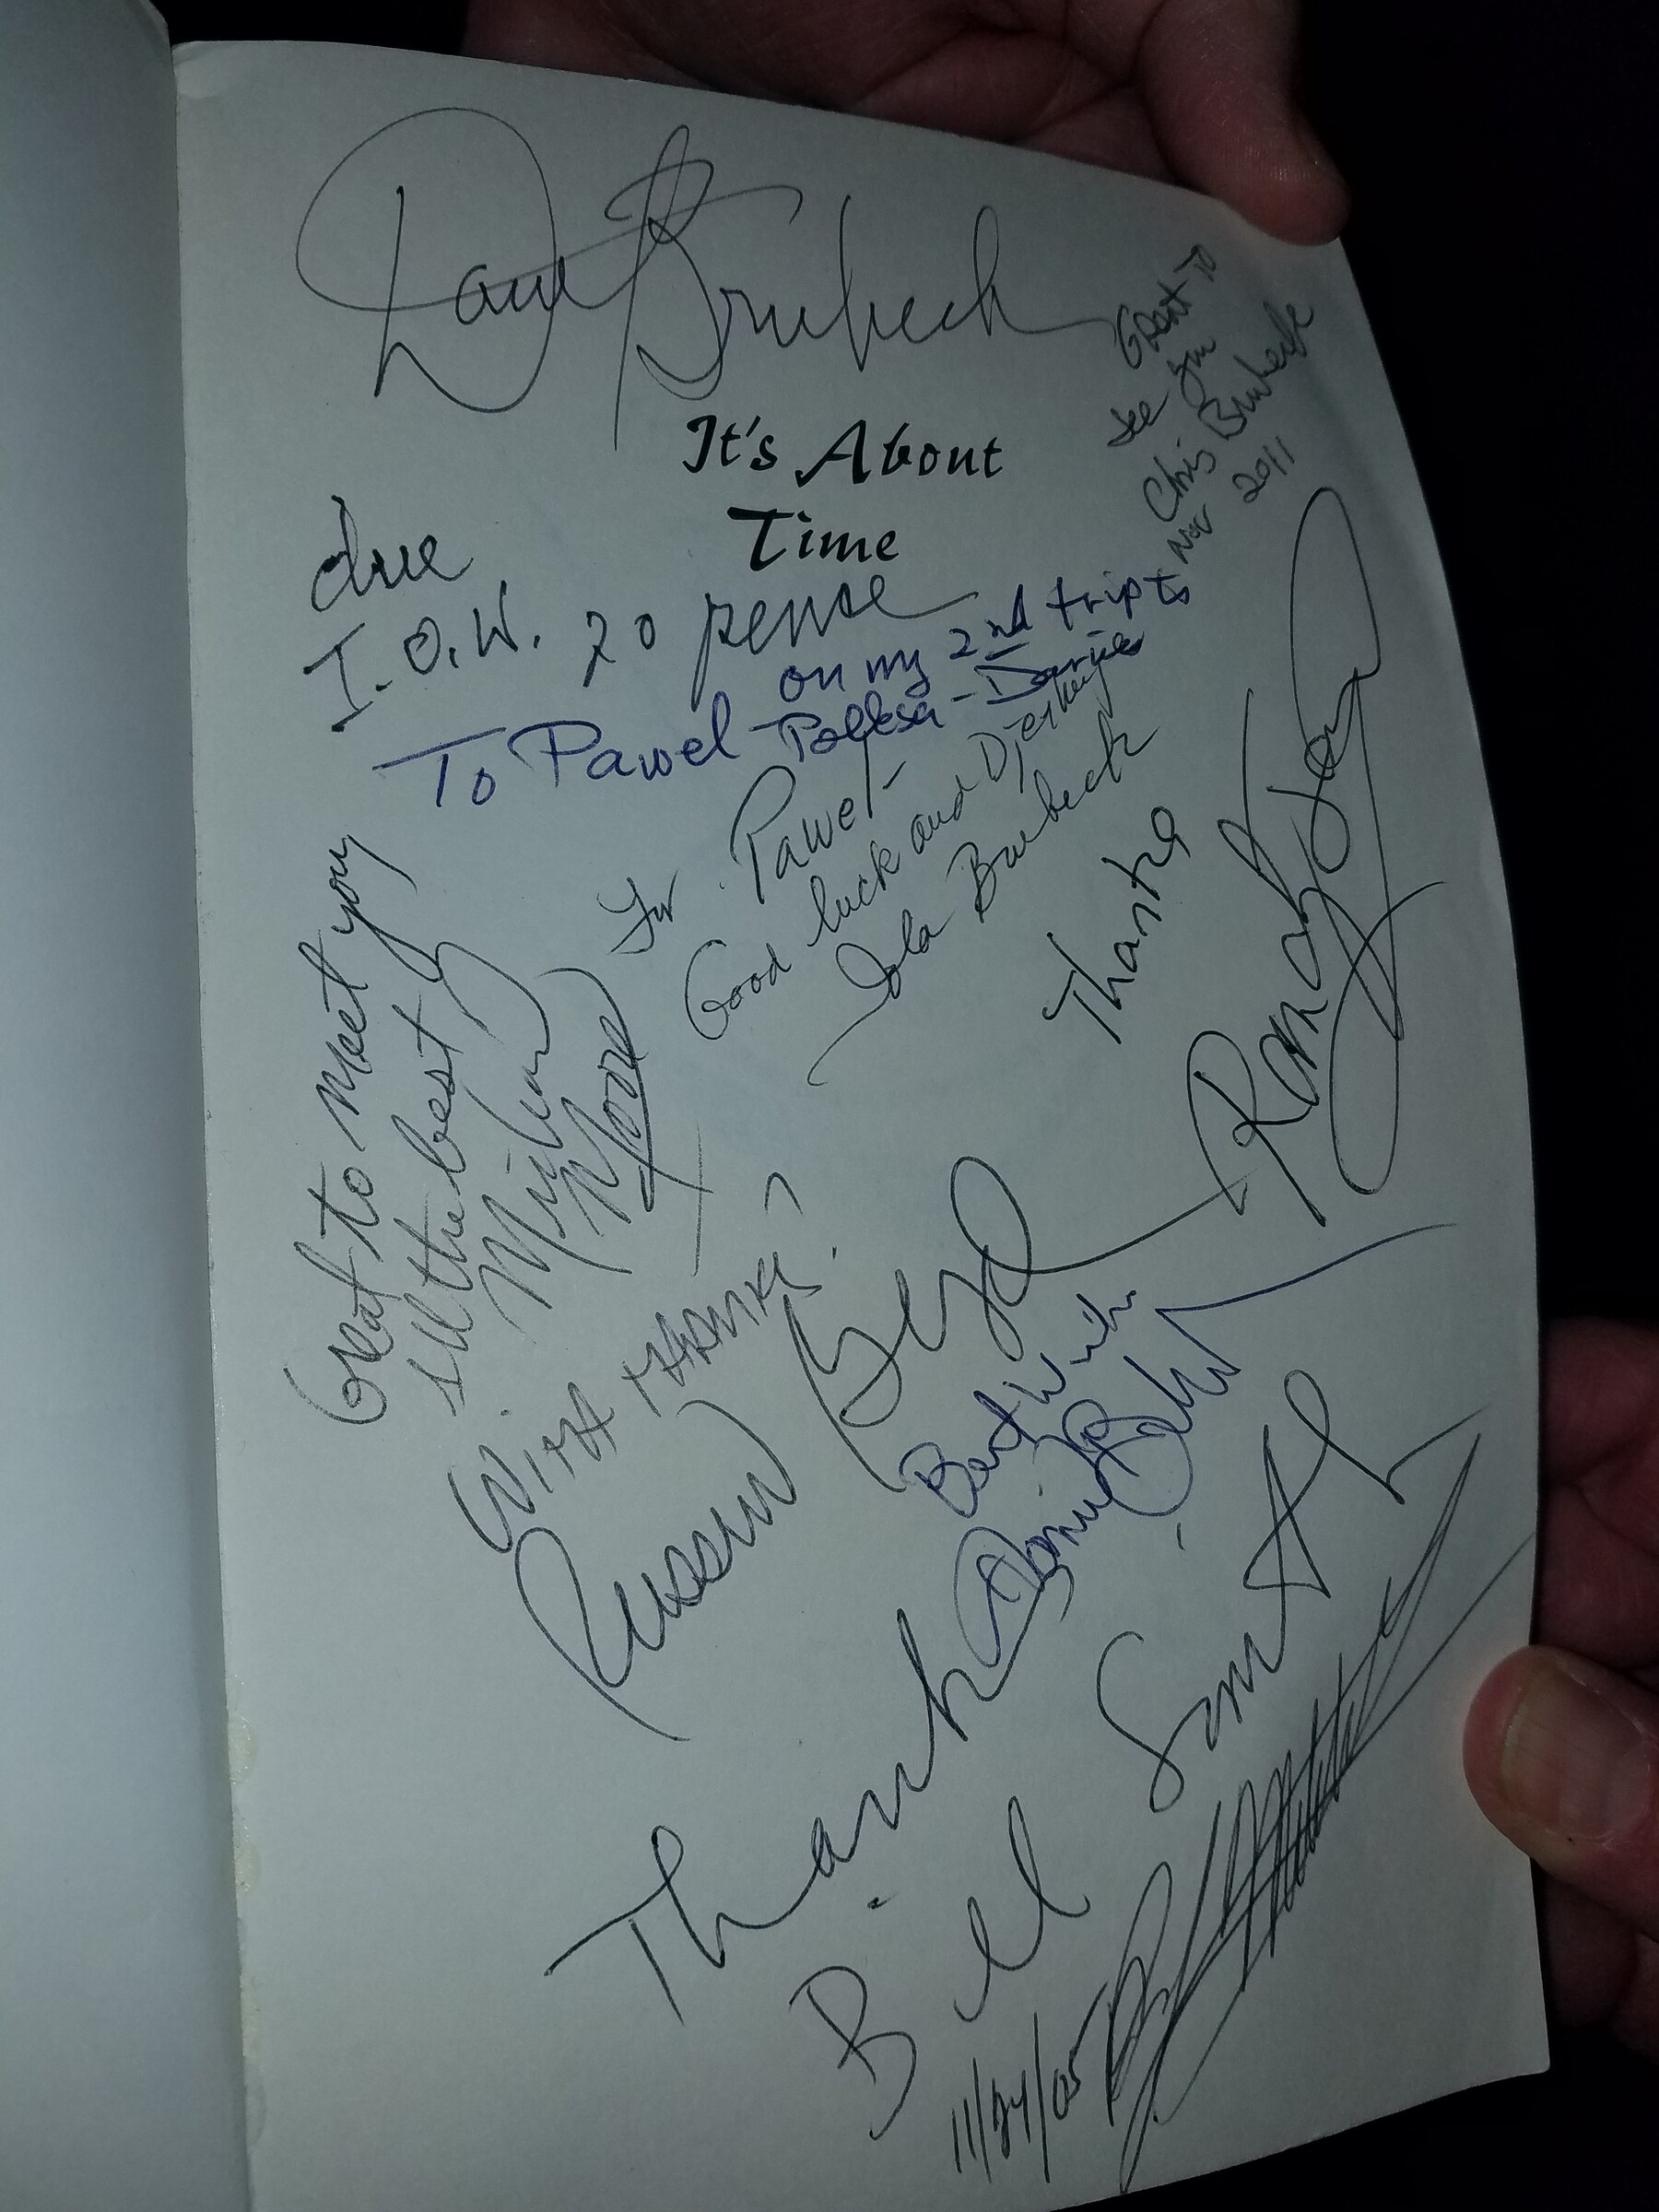 Dave Brubeck
Great to
see you
Chris Brubeck
Nov 2011
It's About
Time
due
I.O.W. 20 pense
on my 2nd trip to
To Pawel - Darius
For Pawel -
Good luck and
Iola Brubeck
Thanks
Randy Jones
Great to meet you
all the best
Michael
Moore
With thanks!
Russell
Best Wishes
Thanks
Bill Smith
11/24/05